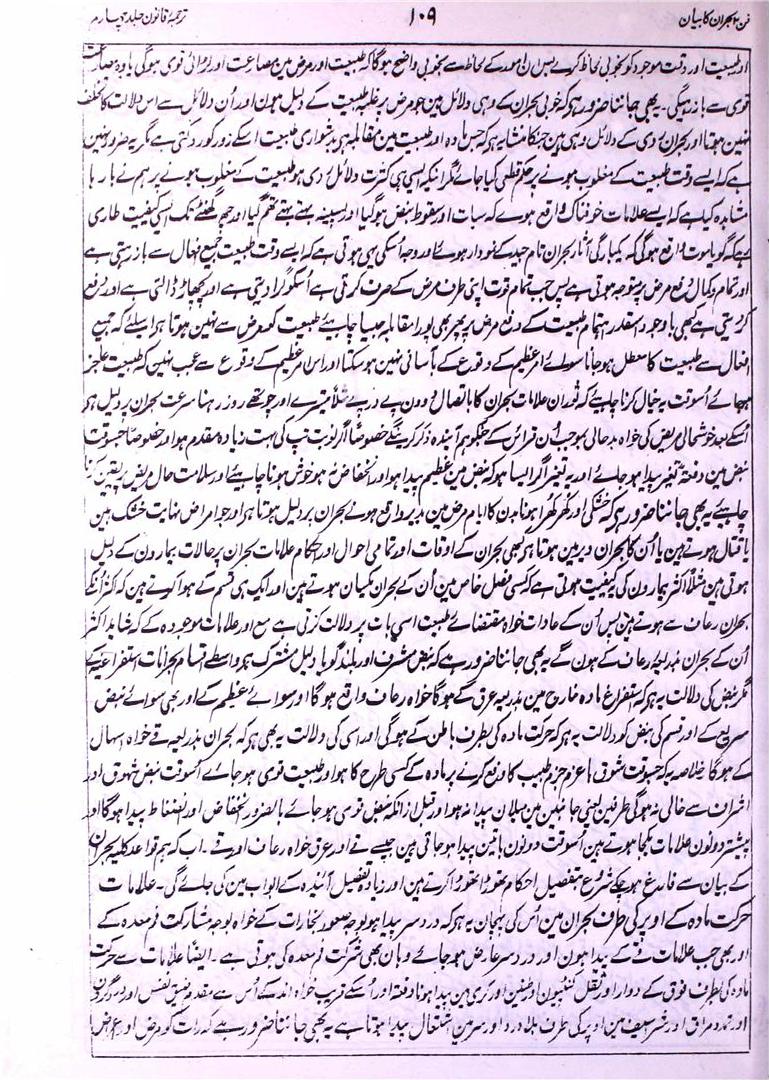 فن ۲ بحران کا بیان ۱۰۹ ترجمۂ قانون جلد چہارم
اور طبیعت اور وقت موجود کو بخوبی لحاظ کرے پس ان امور کے لحاظ سے بخوبی واضح ہوگا کہ طبیعت اور مرض مین مصارعت اور لڑائی قوی ہوگی یا مادہ مصارعت
قوی سے باز رہیگی۔ یہ بھی جاننا ضرور ہے کہ خوبی بحران کے وہی دلائل ہین جو مرض پر غلبہ طبیعت کے دلیل ہون اور اُن دلائل سے اس دلالت کا تخلف
نہین ہوتا اور بحران ردی کے دلائل وہی ہین جنکا منشا یہ ہے کہ جس مادہ اور طبیعت مین مقابلہ ہے بدشواری طبیعت اسکے زور کو رد کرتی ہے مگر یہ ضرور نہین
ہے کہ ایسے وقت طبیعت کے مغلوب ہونے پر حکم قطعی کیا جائے گو کیسی ہی کثرت دلائل ردی ہو طبیعت کے مغلوب ہونے پر ہم نے بارہا
مشاہدہ کیا ہے کہ ایسے علامات خوفناک واقع ہوے کہ سبات اور سقوط نبض ہوگیا اور پسینہ بہتے بہتے تھم گیا اور چھ گھنٹے تک ایسی کیفیت طاری
رہی کہ گویا موت واقع ہوگی کہ یکبارگی آثار بحران تام جید کے نمودار ہوے اور وجہ اُسکی یہی ہوتی ہے کہ ایسے وقت طبیعت جمیع افعال سے باز رہتی ہے
اور تمام و کمال دفع مرض پر متوجہ ہوتی ہے پس جب تمام قوت اپنی طرف مرض کے صرف کرتی ہے اُسکو گرا دیتی ہے اور پچھاڑ ڈالتی ہے اور دفع
کر دیتی ہے کبھی باوجود اسقدر اہتمام طبیعت کے دفع مرض پر پھر بھی پورا مقابلہ جیسا چاہیے طبیعت کو مرض سے نہین ہوتا ہے اسلیے کہ جمیع
افعال سے طبیعت کا معطل ہو جانا سواے امر عظیم کے وقوع کے بآسانی نہین ہو سکتا اور اس امر عظیم کے وقوع سے عجب نہین کہ طبیعت عاجز
ہو جائے اُسوقت یہ خیال کرنا چاہیے کہ ثوران علامات بحران کا باتصال دو دن پے درپے مثلاً تیسرے اور چوتھے روز رہنا سرعت بحران پر دلیل ہے
اُسکے بعد خوشحالی مریض کی خواہ بدحالی بموجب اُن قرائن کے جنکو ہم آیندہ ذکر کرینگے خصوصاً اگر نوبت تپ کی بہت زیادہ مقدم ہو اور خصوصاً جسوقت
نبض مین دفعۃً تغیر پیدا ہو جائے اور یہ تغیر اگر ایسا ہو کہ نبض مین عظیم پیدا ہو اور انخفاض نہو خوش ہونا چاہیے اور سلامت حال مریض پر یقین کرنا
چاہیے یہ بھی جاننا ضرور ہے کہ خشکی اور کھرکھراہٹ ہونا بدن کا ایام مرض مین بدیر واقع ہونے بحران پر دلیل ہوتا ہے اور جو امراض نہایت خشک ہین
یا قتال ہوتے ہین یا اُن کا بحران دیر مین ہوتا ہے کبھی بحران کے اوقات اور تمامی احوال اور احکام علامات بحران پر حالات بیمارون کے دلیل
ہوتی ہین مثلاً اکثر بیمارون کی یہ کیفیت ہوتی ہے کہ کسی فصل خاص مین اُن کے بحران یکسان ہوتے ہین اور ایک ہی قسم کے ہوا کرتے ہین کہ اکثر اُنکے
بحران رعاف سے ہوتے ہین پس اُن کے عادات خواہ مقتضائے طبیعت اسی بات پر دلالت کرتی ہے مع اور علامات موجودہ کے کہ شاید اکثر
اُن کے بحران بذریعہ رعاف کے ہون گے یہ بھی جاننا ضرور ہے کہ نبض مشرف اور بلند گویا دلیل مشترک ہے واسطے اقسام بحرانات استفراغیہ کے
مگر نبض کی دلالت یہ ہے کہ استفراغ مادہ خارج مین بذریعہ عرق کے ہوگا خواہ رعاف واقع ہوگا اور سواے عظیم کے اور بھی سواے نبض
سریع کے اور قسم کی نبض کو دلالت یہ ہے کہ حرکت مادہ کی بطرف باطن کے ہوگی اور اسی کی دلالت یہ بھی ہے کہ بحران بذریعہ قے خواہ اسہال
کے ہوگا خلاصہ یہ کہ جسوقت شوق یا عزم جزم طبیب کا دفع کرنے پر مادہ کے کسی طرح کا ہو اور طبیعت قوی ہو جائے اُسوقت نبض شہوق اور
اشراف سے خالی نہ ہوگی طرفین یعنی جانبین مین میلان پیدا نہ ہو اور قبل ازانکہ نبض قوی ہو جائے بالضرور انخفاض اور انضغاط پیدا ہوگا اور
بیشتر دونون علامات یکجا ہوتے ہین اُسوقت دونون باتین پیدا ہو جاتی ہین جیسے قے اور عرق خواہ رعاف اور قے۔ اب کہ ہم قواعد کلیہ بحران
کے بیان سے فارغ ہو چکے شروع بتفصیل احکام تھوڑا تھوڑا کرتے ہین اور زیادہ تفصیل آئندہ کے ابواب مین کی جائے گی۔ علامات
حرکت مادہ کے اوپر کی طرف بحران مین اُس کی پہچان یہ ہے کہ درد سر پیدا ہو بوجہ صعود بخارات کے خواہ بوجہ مشارکت فم معدہ کے
اور بھی جب علامات قے کے پیدا ہون اور درد سر عارض ہو جائے وہان بھی شرکت فم معدہ کی ہوتی ہے۔ ایضاً علامات سے حرکت
مادہ کی بطرف فوق کے دوار اور ثقل کنپٹیون اور طنین اور کری ہین پیدا ہونا دفعۃً اور اُسکے قریب خواہ اُس سے مقدم ضیق نفس اور
اور تمدد مراق اور شراسیف مین اوپر کی طرف بلا درد اور سر مین اشتعال پیدا ہوتا ہے یہ بھی جاننا ضرور ہے کہ رات کو مرض اور